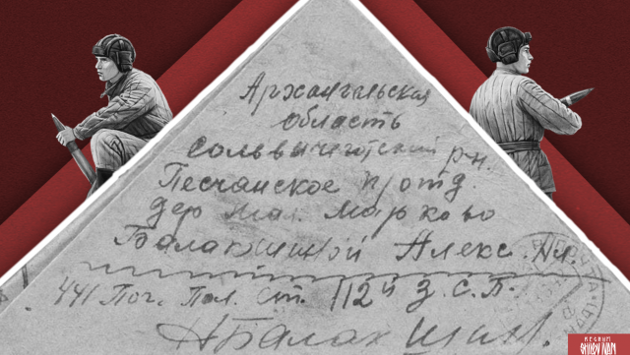 Архангельская
область
Сольвычегодский р-н.
Песчанское п/отд.
дер. Мал. Марково
Балакшиной Алекс. Ив.
441 Поч. Пол. Ст. 112й З.С.П.
А Балакшин.
REGNUM